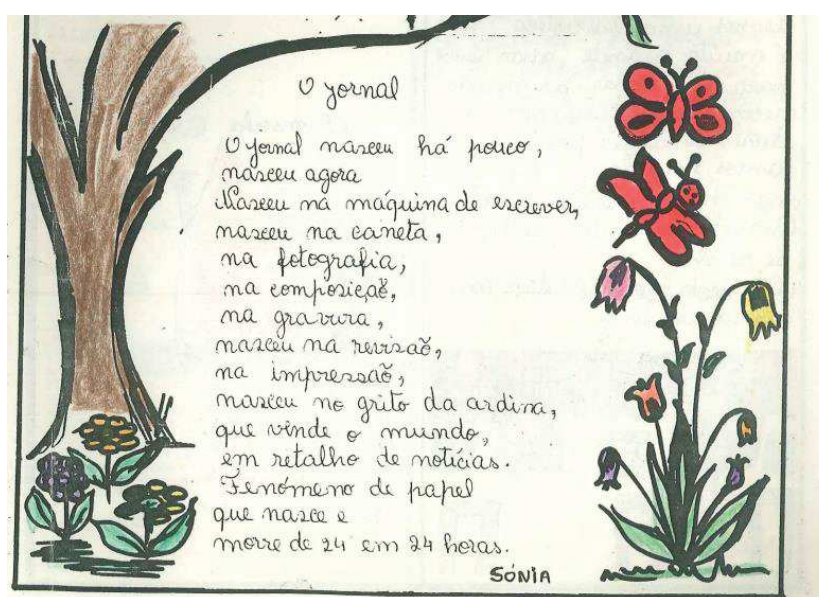 O jornal
O jornal nasceu há pouco,
nasceu agora
Nasceu na máquina de escrever,
nasceu na caneta,
na fotografia,
na composição,
na gravura,
nasceu na revisão,
na impressão,
nasceu no grito da ardina,
que vende o mundo,
em retalho de notícias.
Fenómeno de papel
que nasce e
morre de 24 em 24 horas.
SÓNIA